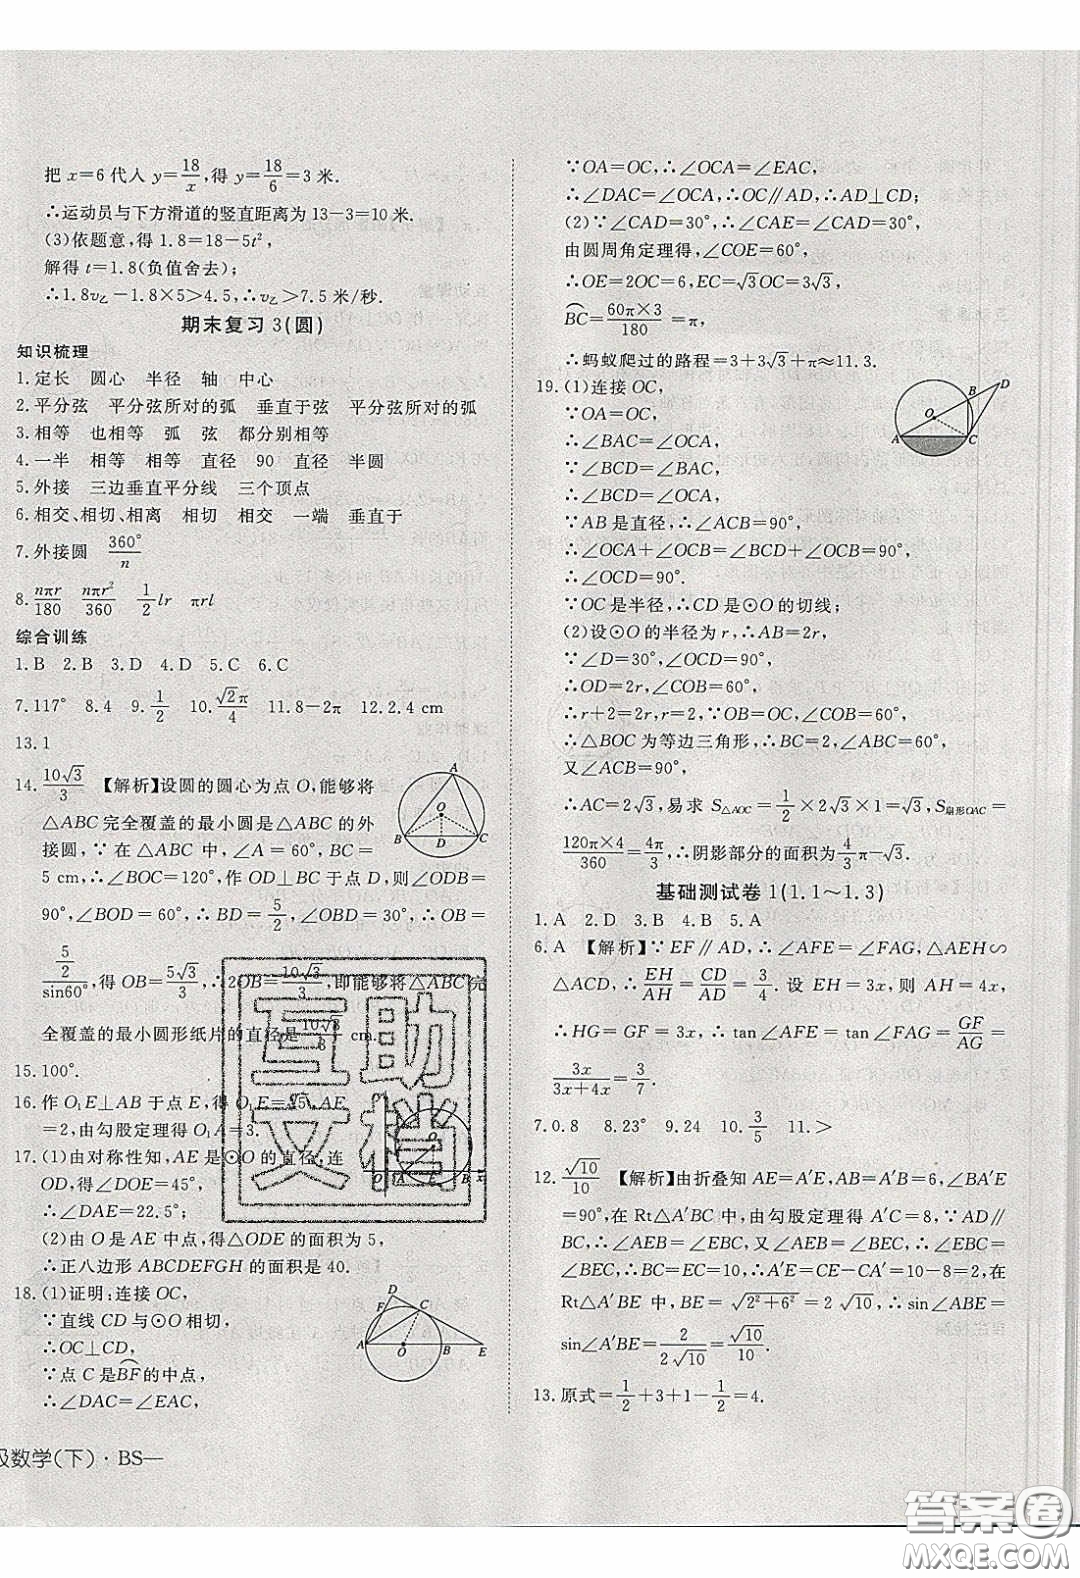 把 x=6 代人 y=18/x，得 y=18/6=3 米.
∴运动员与下方滑道的竖直距离为 13－3=10米.
(3)依题意，得 1.8=18－5t²，
解得 t=1.8(负值舍去)；
∴1.8v乙－1.8×5>4.5，∴v乙>7.5 米/秒.
期末复习 3(圆)
知识梳理
1.定长 圆心 半径 轴 中心
2.平分弦 平分弦所对的弧 垂直于弦 平分弦所对的弧
3.相等 也相等 弧 弦 都分别相等
4.一半 相等 相等 直径 90 直径 半圆
5.外接 三边垂直平分线 三个顶点
6.相交、相切、相离 相切 相交 一端 垂直于
7.外接圆 360°/n
8. nπr/180 nπr²/360 1/2 lr πrl
综合训练
1.B 2.B 3.D 4.D 5.C 6.C
7.117° 8.4 9. 1/2 10. √2π/4 11.8－2π 12.2.4 cm
13.1
14. 10√3/3 【解析】设圆的圆心为点 O，能够将
△ABC完全覆盖的最小圆是△ABC的外
接圆，∵在△ABC 中，∠A=60°，BC=
5 cm，∴∠BOC=120°，作 OD⊥BC 于点D，则∠ODB=
90°，∠BOD=60°，∴BD=5/2，∠OBD=30°，∴OB=
(5/2)/sin60°，得 OB=5√3/3，∴2OB=10√3/3，即能够将△ABC完
全覆盖的最小圆形纸片的直径是 10√3/3 cm.
15.100°.
16.作 O₁E⊥AB 于点 E，得 O₁E=√5，AE
=2，由勾股定理得 O₁A=3.
17.(1)由对称性知，AE是⊙O的直径，连
OD，得∠DOE=45°，
∴∠DAE=22.5°；
(2)由 O 是 AE 中点，得△ODE 的面积为 5，
∴正八边形 ABCDEFGH 的面积是 40.
18.(1)证明：连接 OC，
∵直线 CD 与⊙O 相切，
∴OC⊥CD，
∵点 C 是BF的中点，
∴∠DAC=∠EAC，
级数学(下)·BS—
∵OA=OC，∴∠OCA=∠EAC，
∴∠DAC=∠OCA，∴OC∥AD，∴AD⊥CD，
(2)∵∠CAD=30°，∴∠CAE=∠CAD=30°，
由圆周角定理得，∠COE=60°，
∴OE=2OC=6，EC=√3OC=3√3，
BC=60π×3/180=π，
∴蚂蚁爬过的路程=3+3√3+π≈11.3.
19.(1)连接 OC，
∵OA=OC，
∴∠BAC=∠OCA，
∵∠BCD=∠BAC，
∴∠BCD=∠OCA，
∵AB 是直径，∴∠ACB=90°，
∴∠OCA+∠OCB=∠BCD+∠OCB=90°，
∴∠OCD=90°.
∵OC 是半径，∴CD 是⊙O 的切线；
(2)设⊙O 的半径为 r，∴AB=2r，
∵∠D=30°，∠OCD=90°，
∴OD=2r，∠COB=60°，
∴r+2=2r，∴r=2，∵OB=OC，∠COB=60°，
∴△BOC 为等边三角形，∴BC=2，∠AOC=120°，
又∠ACB=90°，
∴AC=2√3，易求 S△AOC=1/2×2√3×1=√3，S扇形OAC=
120π×4/360=4π/3，∴阴影部分的面积为4/3π－√3.
基础测试卷 1(1.1～1.3)
1.A 2.D 3.B 4.B 5.A
6.A 【解析】∵EF∥AD，∴∠AFE=∠FAG，△AEH∽
△ACD，∴EH/AH=CD/AD=3/4. 设 EH=3x，则 AH=4x，
∴HG=GF=3x，∴tan∠AFE=tan∠FAG=GF/AG=
3x/(3x+4x)=3/7.
7.0.8 8.23° 9.24 10. 3/5 11.>
12. √10/10 【解析】由折叠知 AE=A′E，AB=A′B=6，∠BA′E
=90°，在 Rt△A′BC 中，由勾股定理得 A′C=8，∵AD∥
BC，∴∠AEB=∠EBC，又∠AEB=∠BEC，∴∠EBC=
∠BEC，∴BC=EC=10，∴A′E=CE－CA′=10－8=2，在
Rt△A′BE 中，BE=√(2²+6²)=2√10，∴sin∠ABE=
sin∠A′BE=2/(2√10)=√10/10.
13.原式=1/2+3+1－1/2=4.
互助
文档
答案卷
MXQE.COM